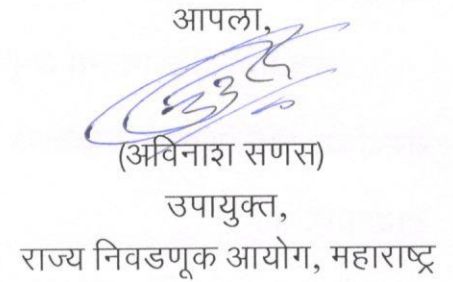 आपला,
(अविनाश सणस)
उपायुक्त,
राज्य निवडणूक आयोग, महाराष्ट्र